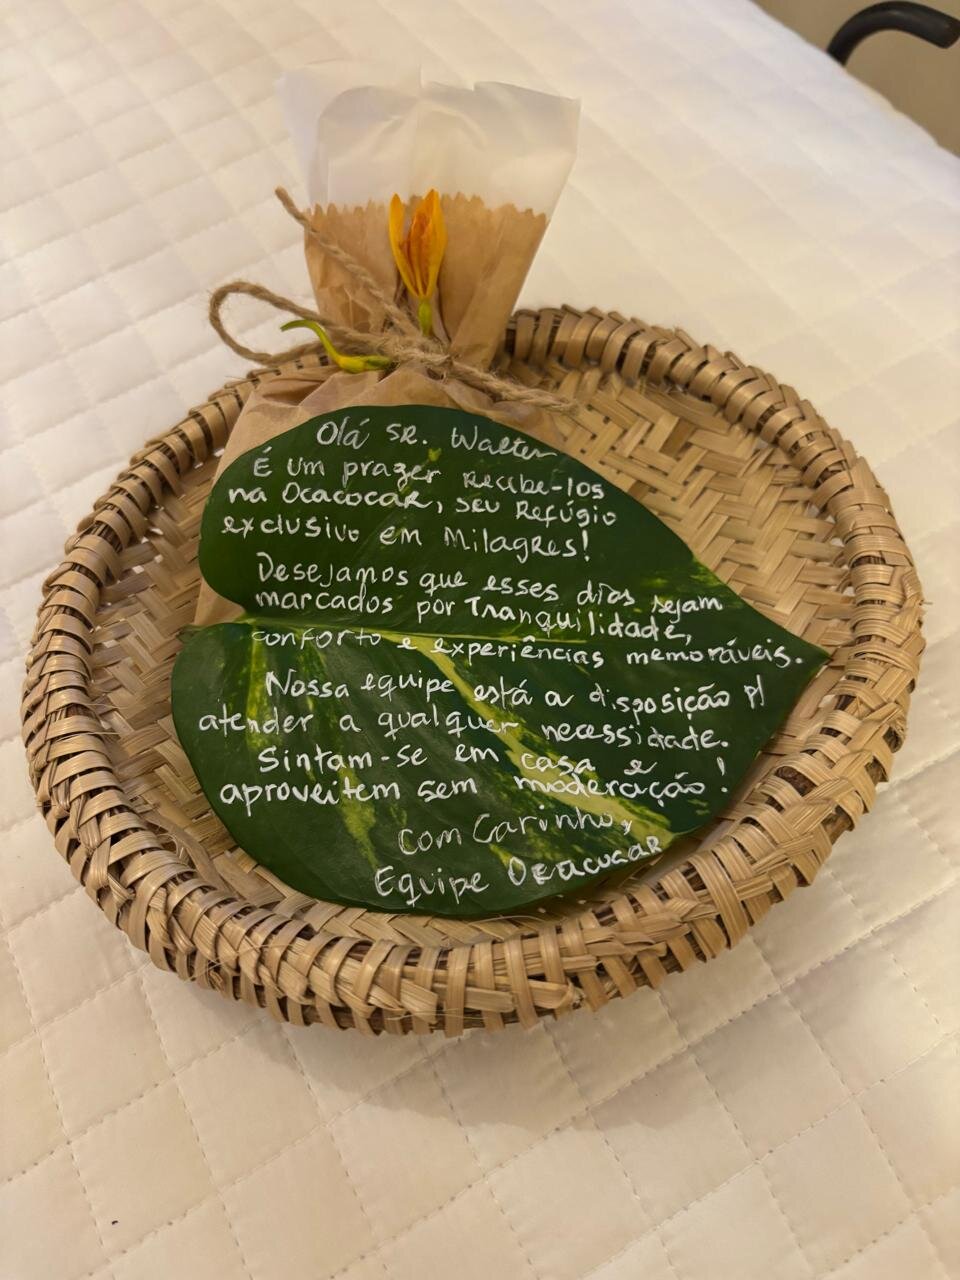 Olá SR. Walter
É um prazer recebe-los
na Ocacocar, seu Refúgio
exclusivo em Milagres!
Desejamos que esses dias sejam
marcados por Tranquilidade,
conforto e experiências memoráveis.
Nossa equipe está a disposição p/
atender a qualquer necessidade.
Sintam-se em casa e
aproveitem sem moderação!
Com Carinho,
Equipe Ocacocar